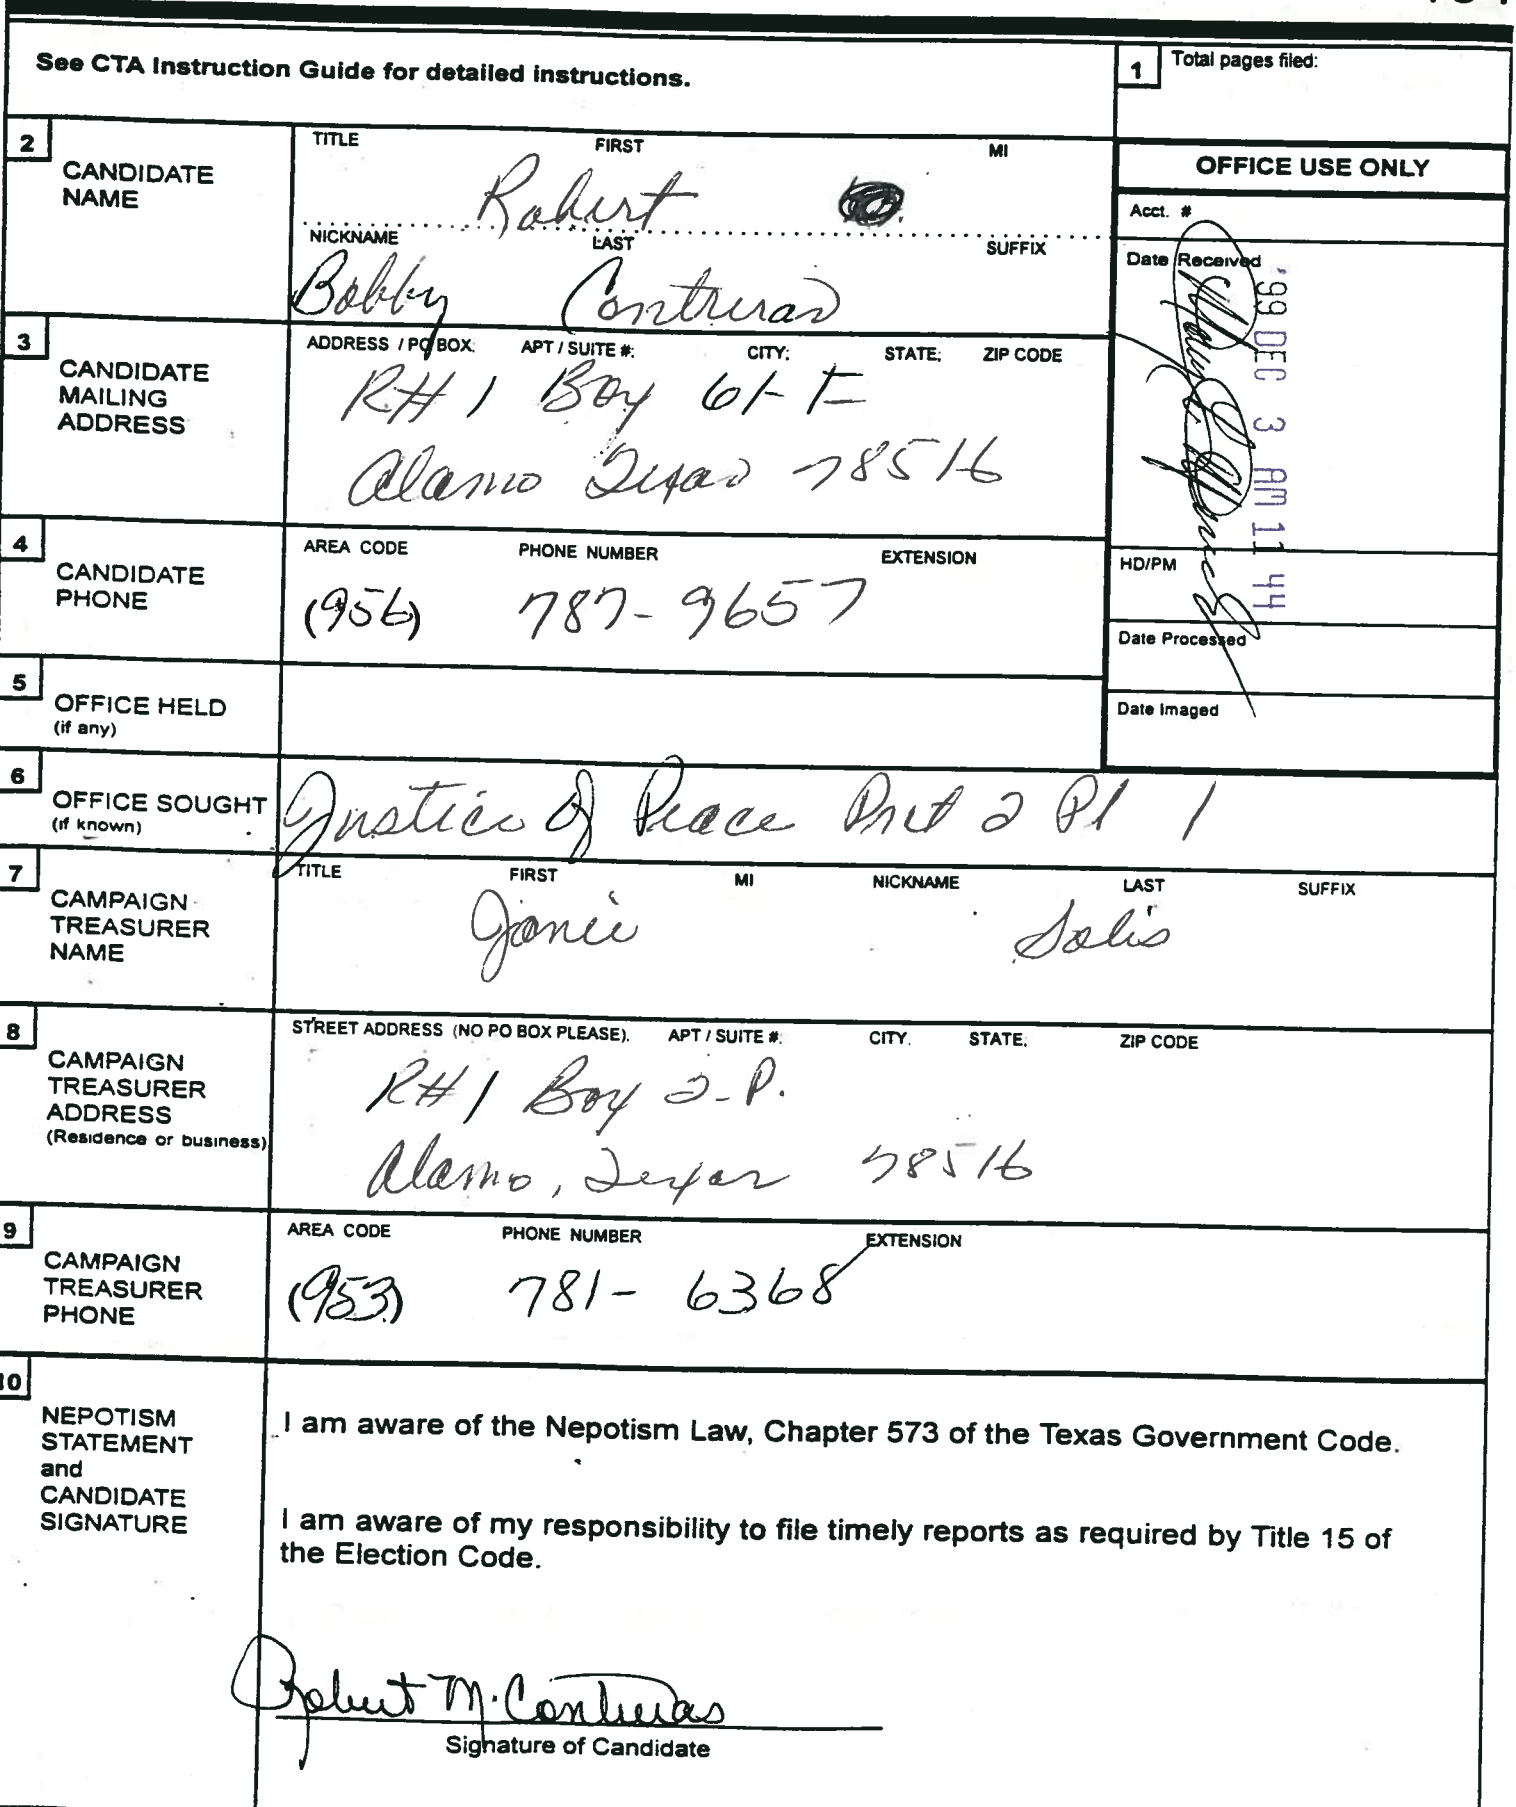 See CTA Instruction Guide for detailed instructions.
1 Total pages filed:
2 CANDIDATE NAME
TITLE FIRST MI
Robert
NICKNAME LAST SUFFIX
Bobby Contreras
OFFICE USE ONLY
Acct. #
Date Received
'99 DEC 3 AM 11 44
HD/PM
Date Processed
Date Imaged
3 CANDIDATE MAILING ADDRESS
ADDRESS / PO BOX; APT / SUITE #; CITY; STATE; ZIP CODE
Rt# 1 Box 61-F
Alamo Texas 78516
4 CANDIDATE PHONE
AREA CODE PHONE NUMBER EXTENSION
(956) 787-9657
5 OFFICE HELD
(if any)
6 OFFICE SOUGHT
(if known)
Justice of Peace Prct 2 Pl 1
7 CAMPAIGN TREASURER NAME
TITLE FIRST MI NICKNAME LAST SUFFIX
Janie Solis
8 CAMPAIGN TREASURER ADDRESS
(Residence or business)
STREET ADDRESS (NO PO BOX PLEASE). APT / SUITE #: CITY. STATE; ZIP CODE
Rt# 1 Box 2-P.
Alamo, Texas 78516
9 CAMPAIGN TREASURER PHONE
AREA CODE PHONE NUMBER EXTENSION
(953) 781-6368
10 NEPOTISM STATEMENT and CANDIDATE SIGNATURE
I am aware of the Nepotism Law, Chapter 573 of the Texas Government Code.
I am aware of my responsibility to file timely reports as required by Title 15 of
the Election Code.
Robert M. Contreras
Signature of Candidate